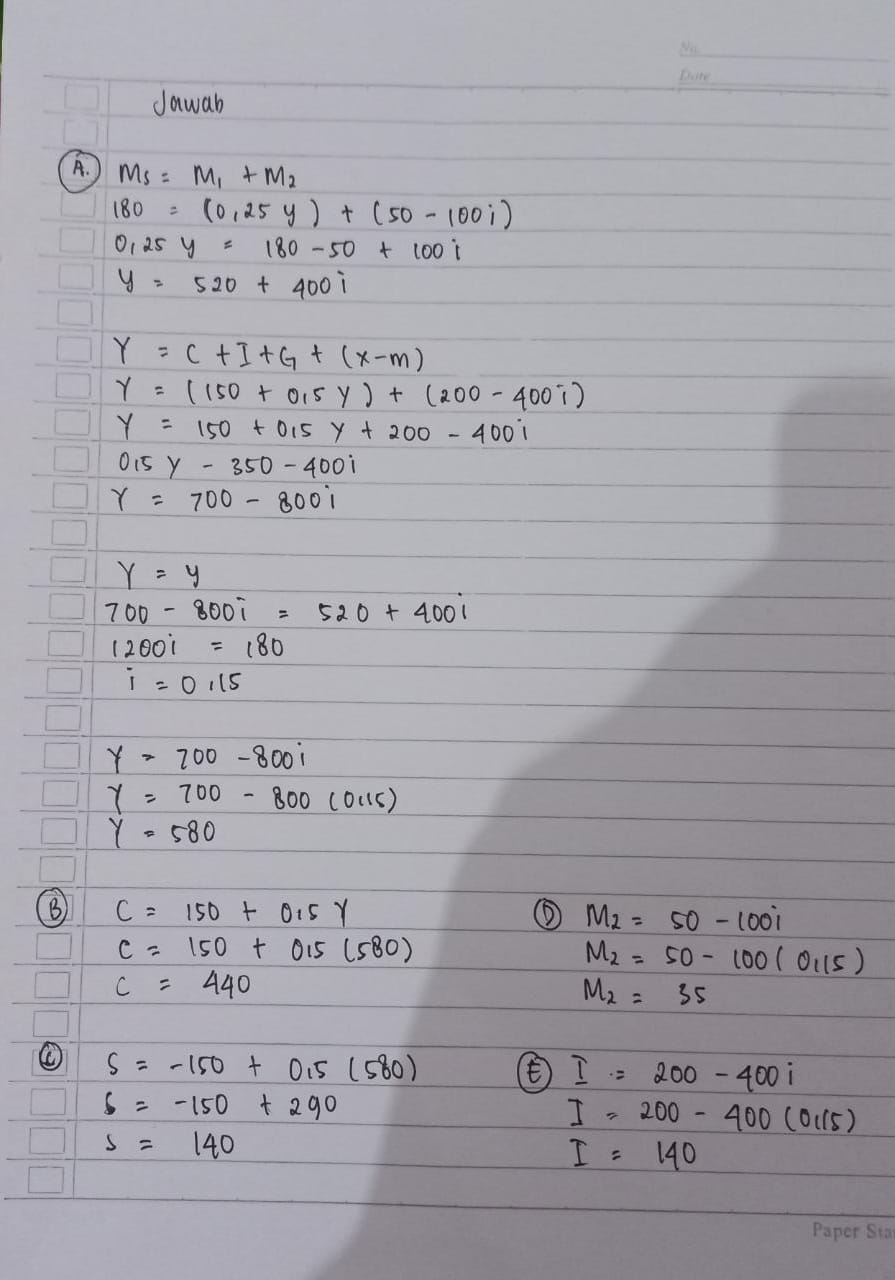 No.
Date
Jawab
A. Ms = M₁ + M₂
180 = (0,25 y) + (50 - 100i)
0,25 y = 180 - 50 + 100 i
y = 520 + 400 i
Y = C + I + G + (x-m)
Y = (150 + 0,5 Y) + (200 - 400i)
Y = 150 + 0,5 Y + 200 - 400i
0,5 Y - 350 - 400i
Y = 700 - 800i
Y = y
700 - 800i = 520 + 400i
1200i = 180
i = 0,15
Y = 700 - 800i
Y = 700 - 800 (0,15)
Y = 580
B C = 150 + 0,5 Y
C = 150 + 0,5 (580)
C = 440
C S = -150 + 0,5 (580)
S = -150 + 290
S = 140
D M₂ = 50 - 100i
M₂ = 50 - 100 (0,15)
M₂ = 35
E I = 200 - 400i
I = 200 - 400 (0,15)
I = 140